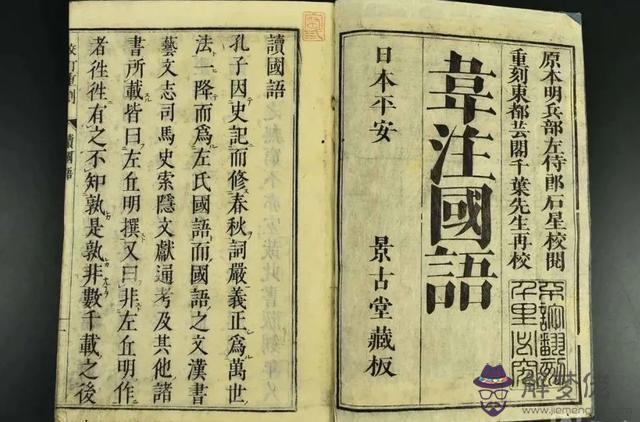 原本明兵部左侍郎石星校閲
重刻東都芸閣千葉先生再校
韋注國語
不許翻刻
千里必究
日本平安
景古堂藏板
讀國語
孔子因史記而修春秋詞嚴義正爲萬世
法一降而爲左氏國語而國語之文漢書
藝文志司馬史索隱文獻通考及其他諸
書所載皆曰左丘明撰又曰非左丘明作
者徃徃有之不知孰是孰非數千載之後
讀國語
一
解梦佬